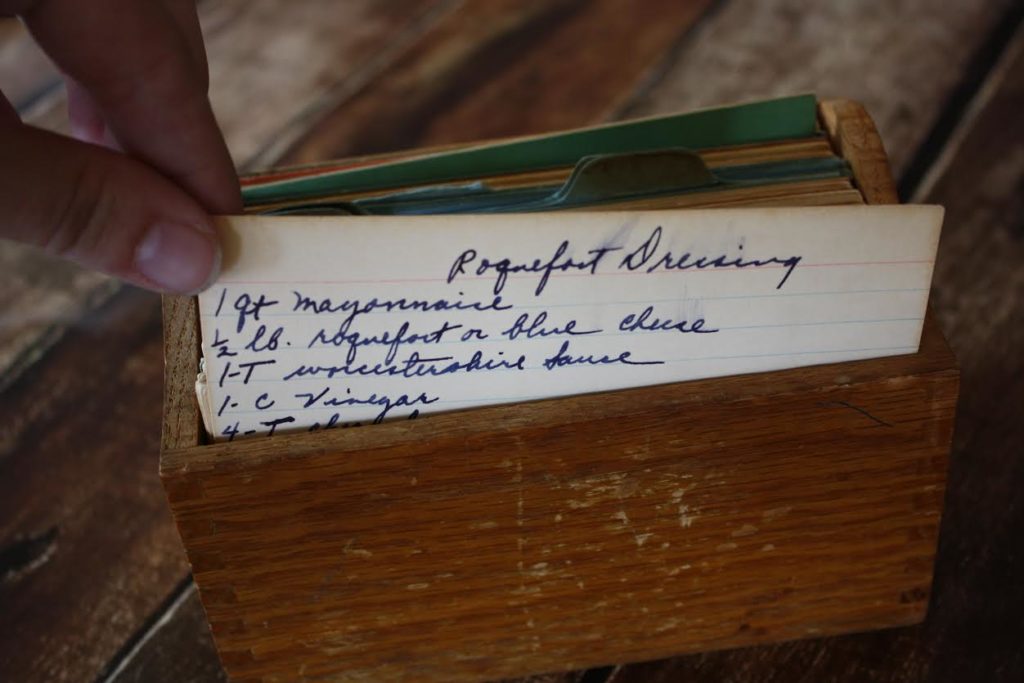 Roquefort Dressing
1 qt mayonnaise
½ lb. roquefort or blue cheese
1-T worcestershire sauce
1-C Vinegar
4-T